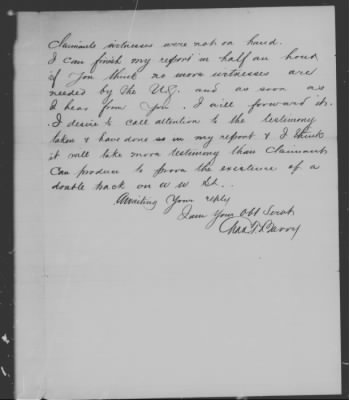 Claimants witnesses were not on hand.
I can finish my report in half an hour
if you think no more witnesses are
needed by the U.S. and as soon as
I hear from you. I will forward it.
I desire to call attention to the testimony
taken & have done so in my report & I think
it will take more testimony than Claimants
can produce to prove the existence of a
double track on
Awaiting Your reply
I am Your Obt Servt
Chas